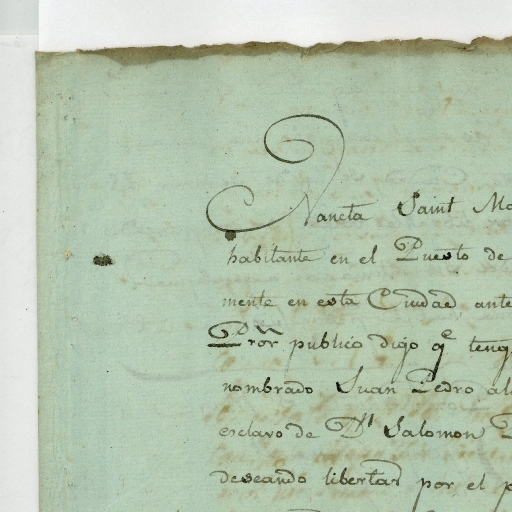 Naneta Saint Ma
habitante en el Puesto de
mente en esta Ciudad, ante
Pror publico digo qe teng
nombrado Juan Pedro al
esclavo de Dn Salomon
deseando libertad por el p